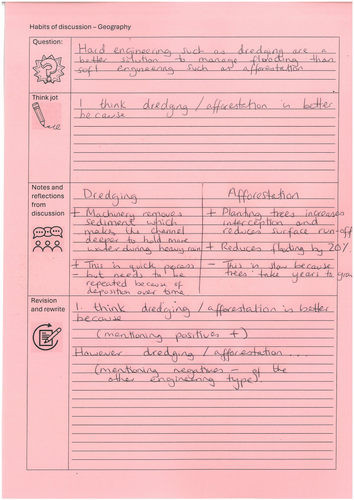 Habits of discussion – Geography
Question:
Hard engineering such as dredging are a
better solution to manage flooding than
soft engineering such as afforestation
Think jot
I think dredging / afforestation is better
because
Notes and
reflections
from
discussion
Dredging
+ Machinery removes
sediment which
makes the channel
deeper to hold more
water during heavy rain
+ This is quick process
- but needs to be
repeated because of
deposition over time
Afforestation
+ Planting trees increases
interception and
reduces surface run-off
+ Reduces flooding by 20%
- This is slow because
trees take years to grow
Revision
and rewrite
I think dredging / afforestation is better
because
(mentioning positives +)
However dredging / afforestation ....
(mentioning negatives - of the
other engineering type).